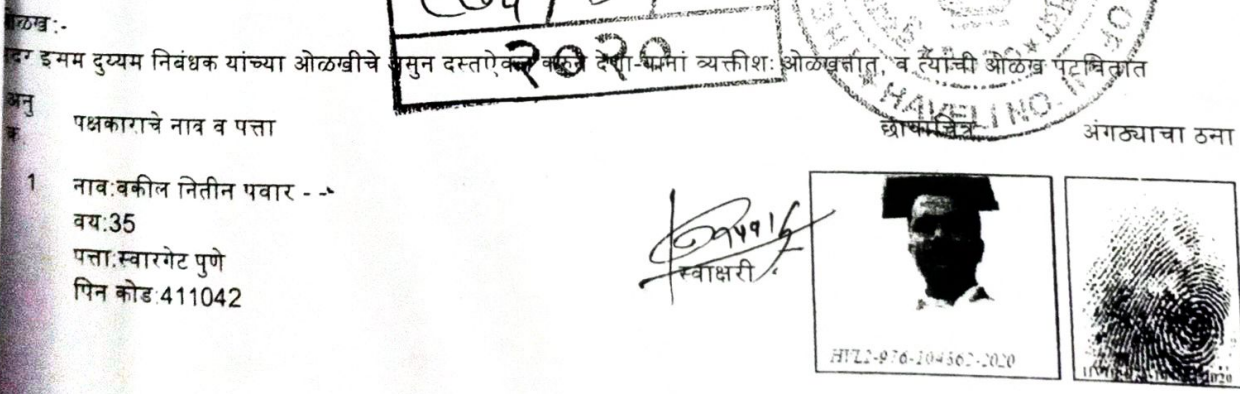 ओळख:-
इसम दुय्यम निबंधक यांच्या ओळखीचे असुन दस्तऐवज करुन देणा-यानां व्यक्तीशः ओळखतात, व त्यांची ओळख पटवितात
२०२०
HAVELI NO.
अनु क्र.
पक्षकाराचे नाव व पत्ता
छायाचित्र
अंगठ्याचा ठसा
1
नाव:वकील नितीन पवार - -
वय:35
पत्ता:स्वारगेट पुणे
पिन कोड:411042
स्वाक्षरी